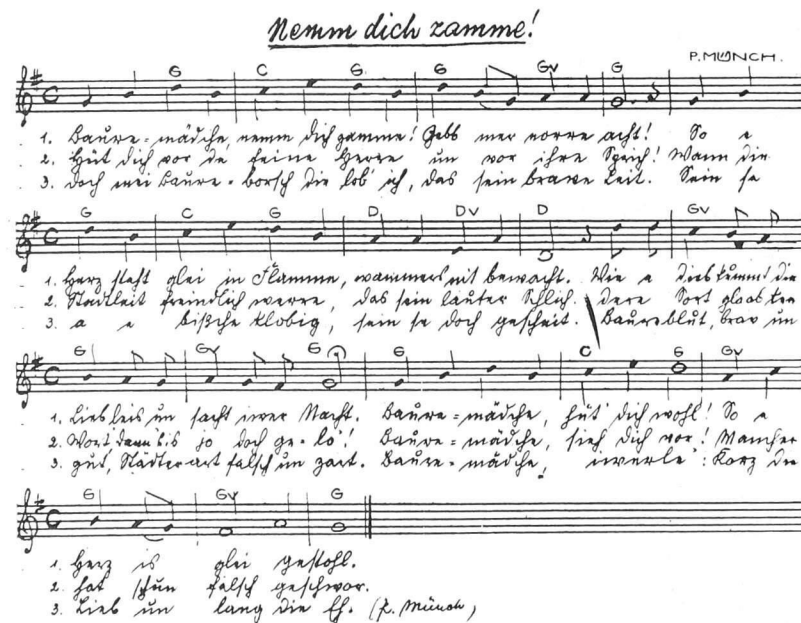 Nemm dich zamme!
P. MÜNCH.
G C G G GV G
1. Baure-mädche, nemm dich zamme! Gebb mer norre acht! So e
2. Hüt dich vor de feine Herre un vor ihre Sprich! Wann die
3. Doch mei Baure-borsch die lob' ich, das sein brave Leit. Sein se
G C G D DV D GV
1. Herz steht glei in Flamme, wammers nit bewacht. Wie e Dieb kummt die
2. Stadtleit freindlich werre, das sein lauter Schlich. Dere Sort glaab ken
3. a e bißche klobig, sein se doch gescheit. Baureblut, brav un
G GV G G C G GV
1. Lieb leis un sacht iwer Nacht. Baure-mädche, hüt' dich wohl! So e
2. Wort dann bis jo doch ge-lo! Baure-mädche, sieh dich vor! Mancher
3. gut, Städterart falsch un zart. Baure-mädche, iwerle': Korz die
G GV G
1. Herz is glei gestohl.
2. hat schun falsch geschwor.
3. Lieb un lang die Eh. (P. Münch)